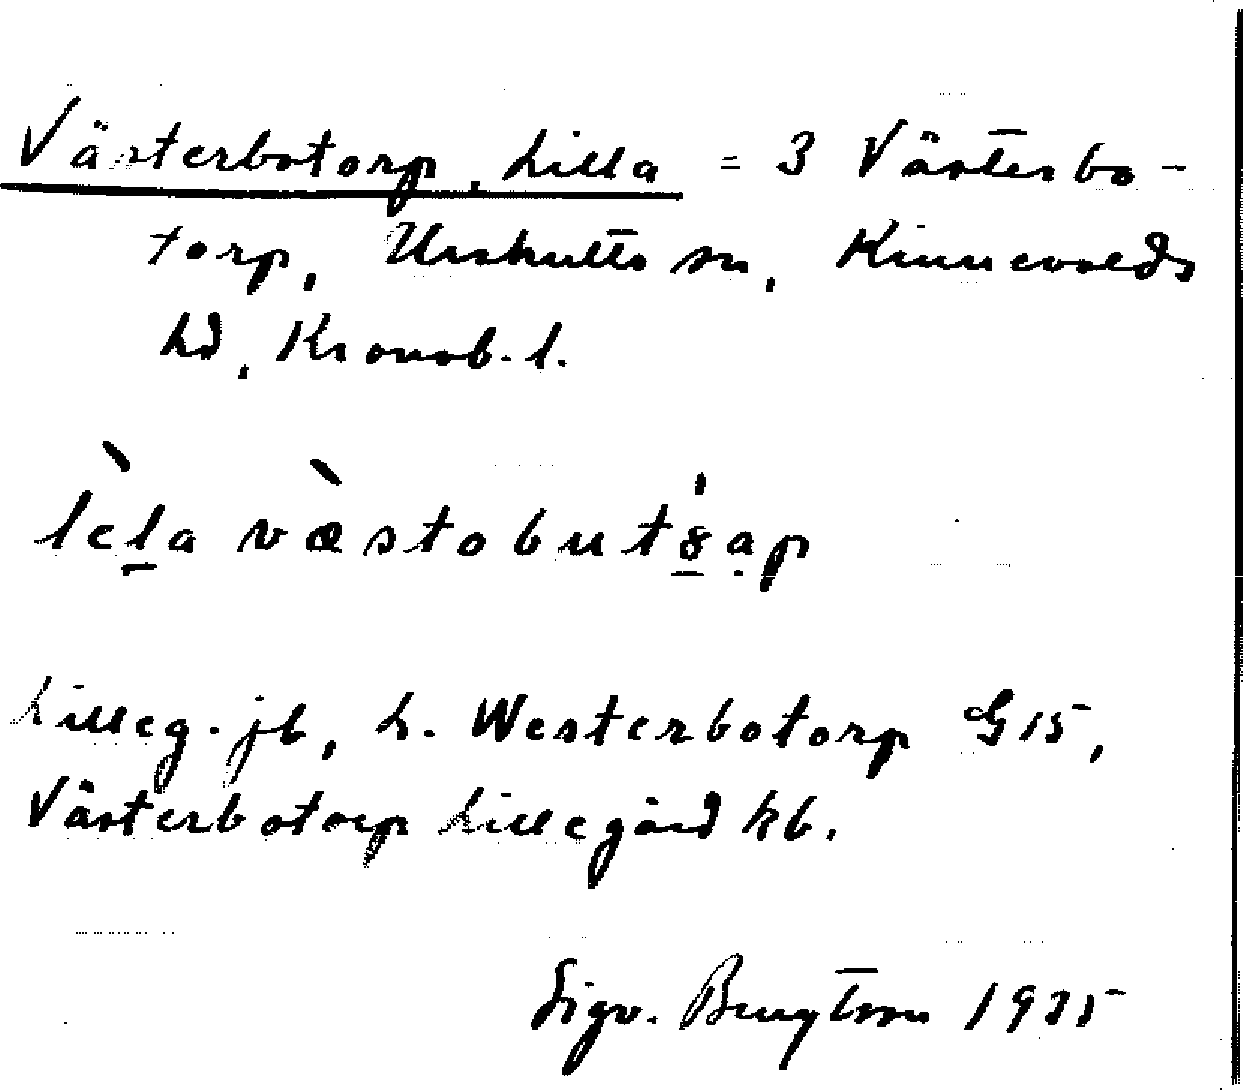 Västerbotorp, Lilla = 3 Västerbo-
torp, Urshults sn, Kinnevalds
hd, Kronob. l.
lèla væ̀stobut8́ap
Lilleg. jb, L. Westerbotorp G15,
Västerbotorp Lillegård kb.
Sigv. Bengtsson 1935